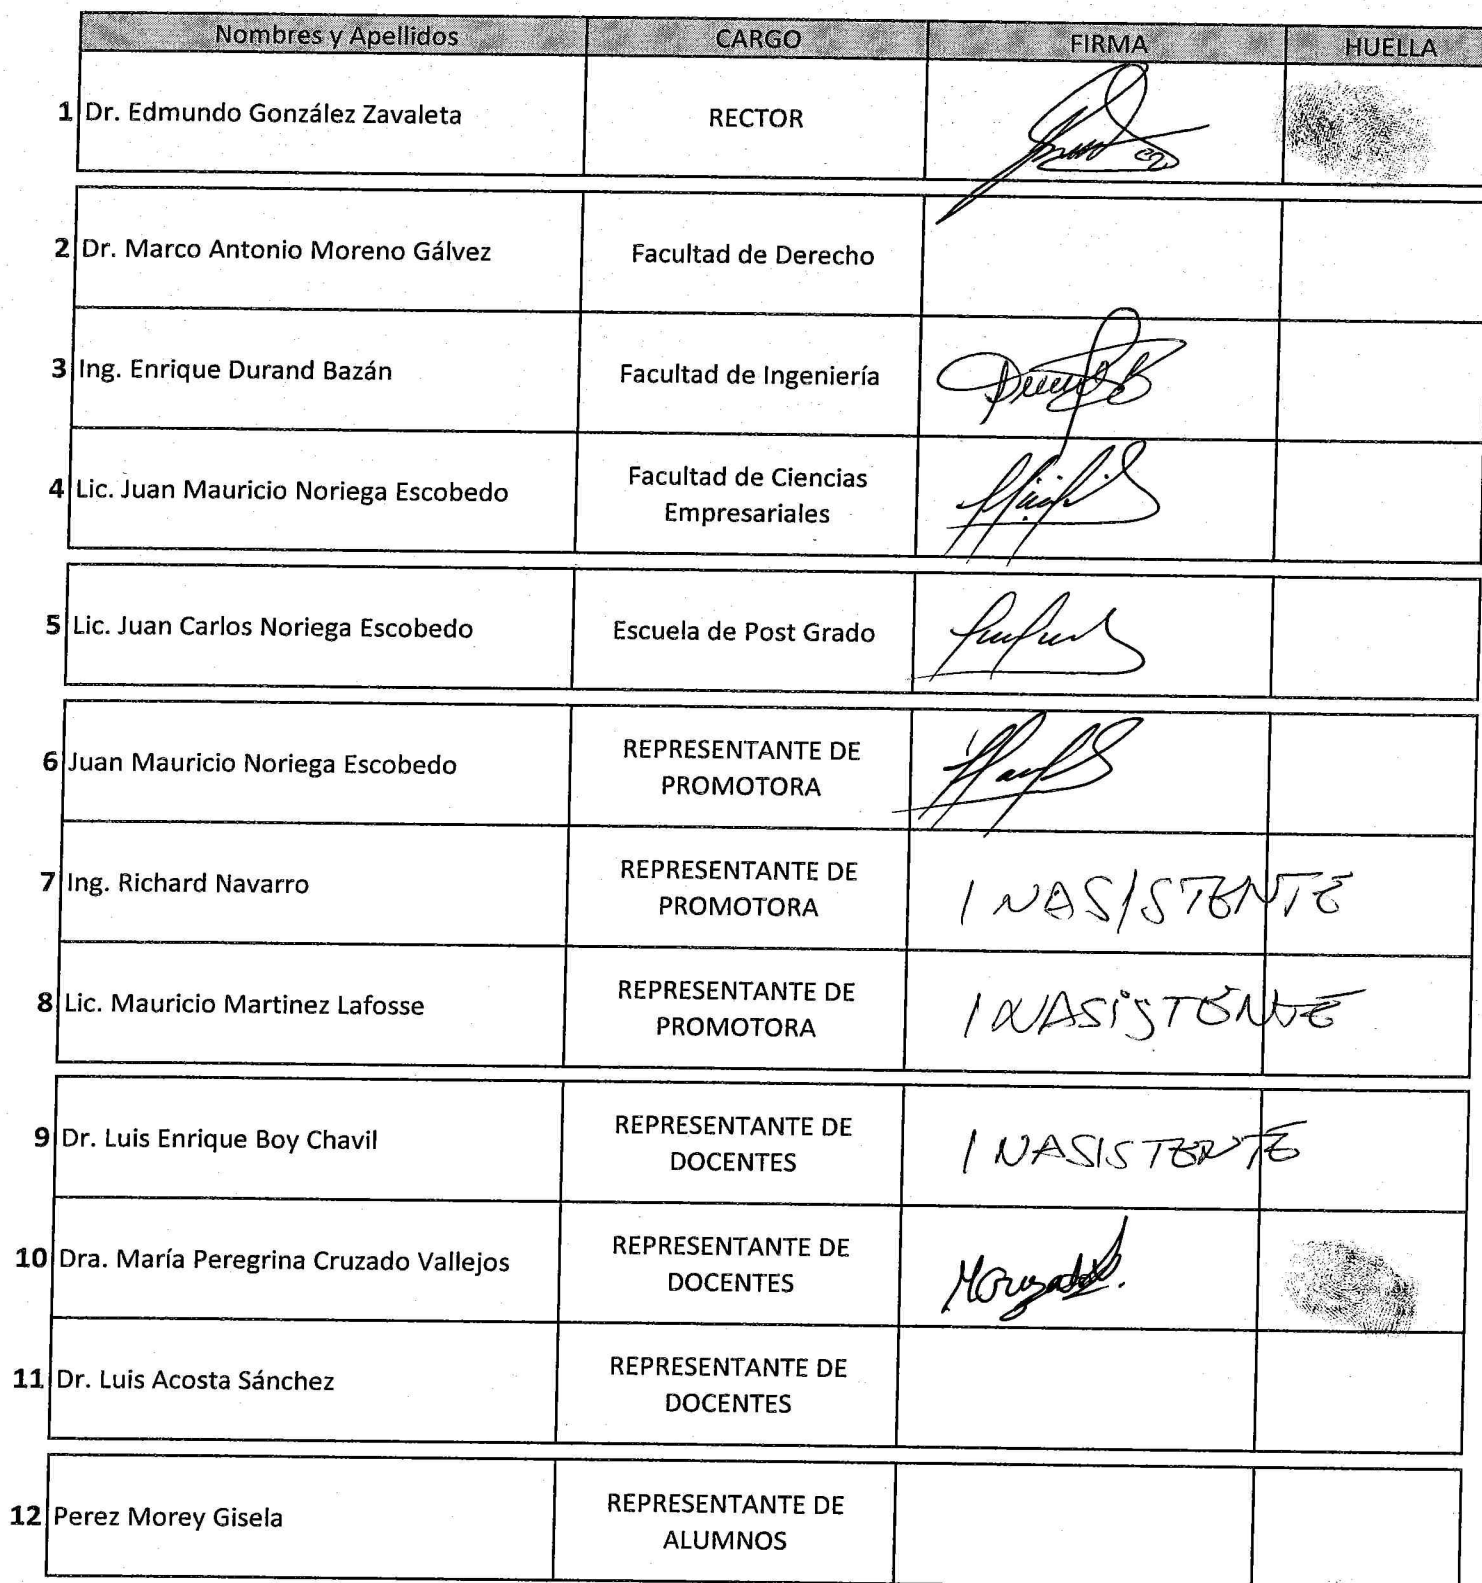 Nombres y Apellidos CARGO FIRMA HUELLA
1 Dr. Edmundo González Zavaleta RECTOR
2 Dr. Marco Antonio Moreno Gálvez Facultad de Derecho
3 Ing. Enrique Durand Bazán Facultad de Ingeniería
4 Lic. Juan Mauricio Noriega Escobedo Facultad de Ciencias
Empresariales
5 Lic. Juan Carlos Noriega Escobedo Escuela de Post Grado
6 Juan Mauricio Noriega Escobedo REPRESENTANTE DE
PROMOTORA
7 Ing. Richard Navarro REPRESENTANTE DE
PROMOTORA INASISTENTE
8 Lic. Mauricio Martinez Lafosse REPRESENTANTE DE
PROMOTORA INASISTENTE
9 Dr. Luis Enrique Boy Chavil REPRESENTANTE DE
DOCENTES INASISTENTE
10 Dra. María Peregrina Cruzado Vallejos REPRESENTANTE DE
DOCENTES
11 Dr. Luis Acosta Sánchez REPRESENTANTE DE
DOCENTES
12 Perez Morey Gisela REPRESENTANTE DE
ALUMNOS